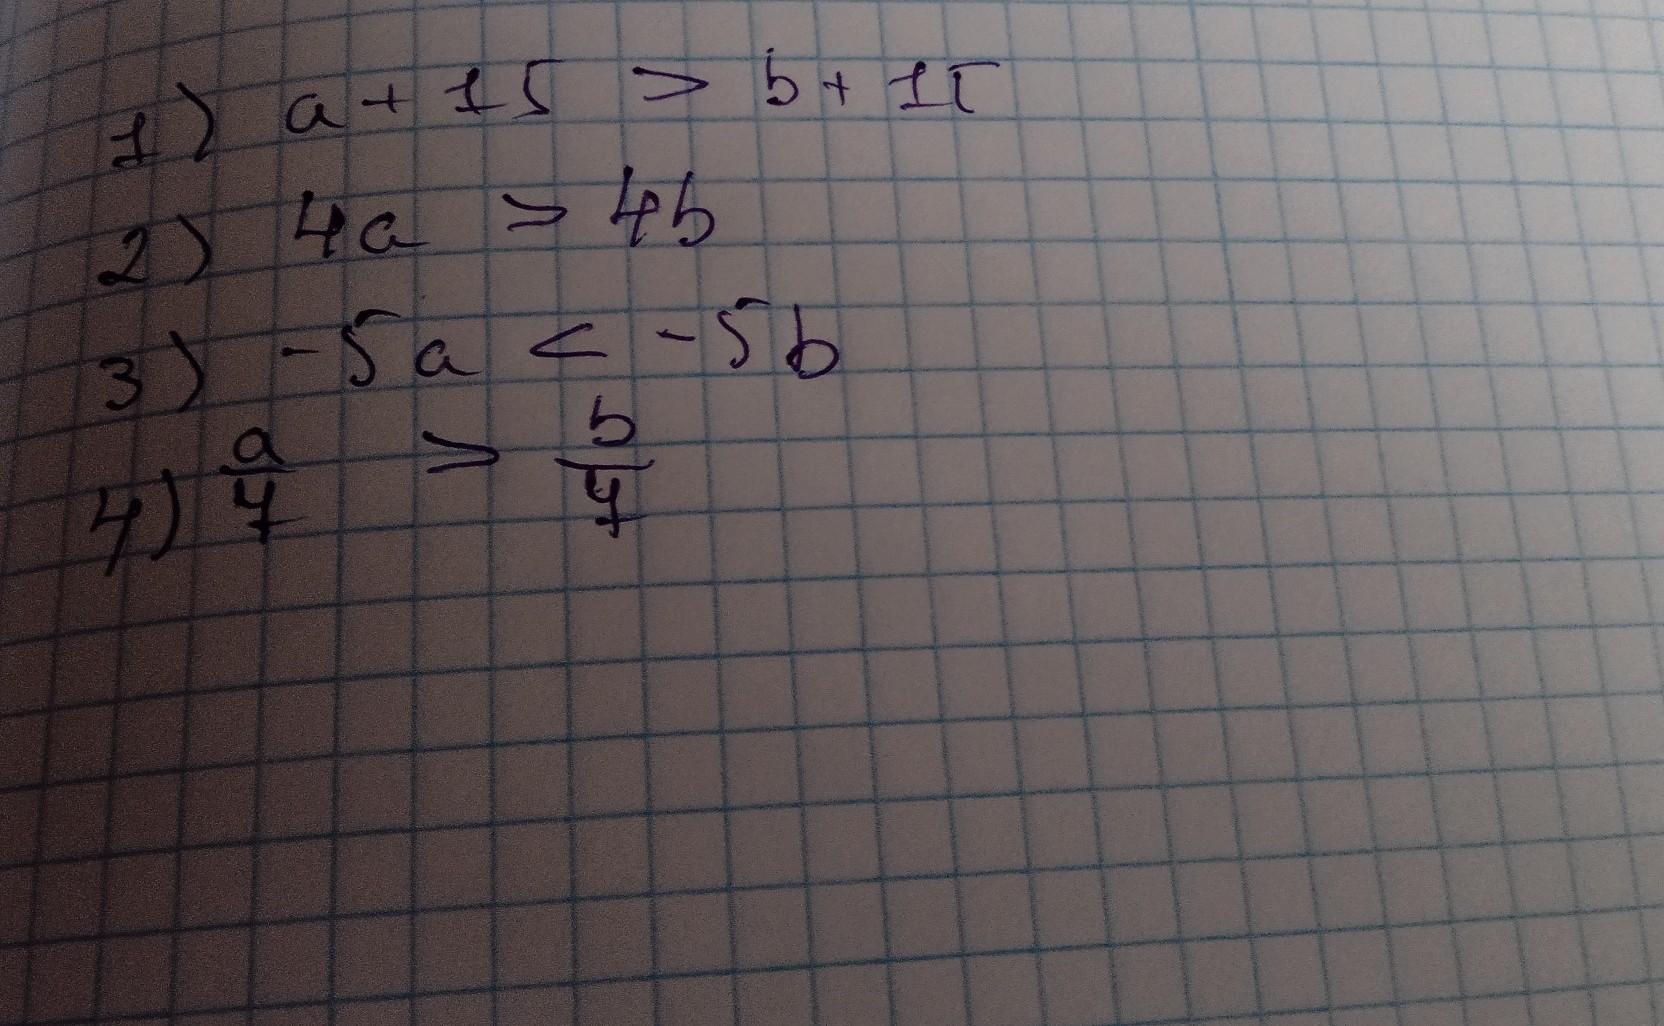 1) a + 15 > b + 15
2) 4a > 4b
3) -5a < -5b
4) a/7 > b/7